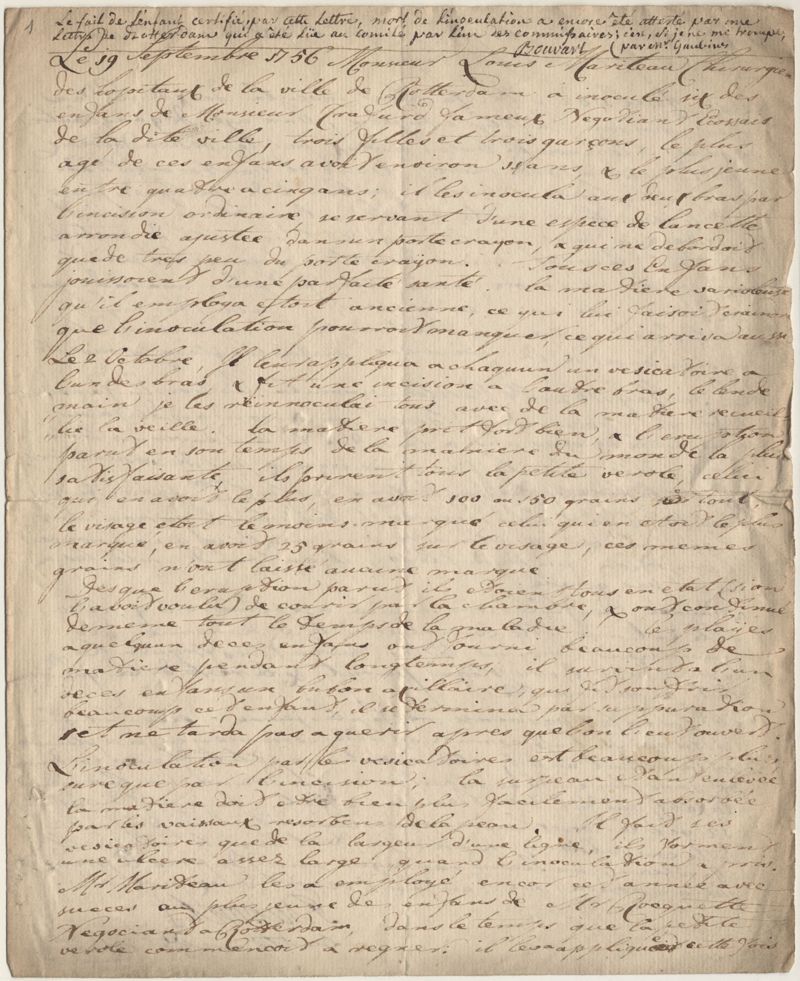 1
Le fait de L'enfant certifié par cette Lettre, mort de l'inoculation a encore été attesté par une
Lettre de Rotterdam qui a été lüe au comité par l'un des commissaires;
Bouvart (par Mr. Gaubius
Le 19 Septembre 1756 Monsieur Louis Mariteau Chirurgien
des hopitaux de la ville de Rotterdam a inoculé six des
enfans de Monsieur Crafurd fameux Negotiant Ecossais
de la dite ville, trois filles et trois garçons, le plus
agé de ces enfans avoit environ ans, & le plus jeune
entre quatre a cinq ans; il les inocula aux deux bras par
l'incision ordinaire, se servant d'une espece de lancette
arrondie ajustée dans un porte crayon, & qui ne debordoit
que de tres peu du porte crayon. Tous ces Enfans
jouissoient d'une parfaite santé. la matiere varioleuse
qu'il employa etoit ancienne, ce qui lui faisoit craindre
que l'inoculation pourroit manquer, ce qui arriva aussi
Le 2 Octobre, Il leur appliqua a chaquun un vesicatoire a
l'un des bras, & fit une incision a l'autre bras, le lende
main je les reinnoculai tous avec de la matiere recueil
lie la veille. la matiere prit tout bien, & l'eruption
parut en son temps de la maniere du monde la plus
satisfaisante, ils prirent tous la petite verole, celui
qui en avoit le plus, en avoit 100 au 150 grains en tout
le visage etoit le moins marqué celui qui en etoit le plus
marqué, en avoit 25 grains sur le visage, ces memes
grains n'ont laissé aucune marque
Des que l'eruption parut ils etoient tous en etat (si on
l'avoit voulu) de courir par la chambre, & ont continué
de meme tout le temps de la maladie les playes
a quelquun de ces enfans ont fourni beaucoup de
matiere pendant longtemps, il survint a l'un
de ces enfans un bubon axillaire, qui fit souffrir
beaucoup cet enfant, il se termina par suppuration
et ne tarda pas a guerir apres que l'on l'eut ouvert.
L'inoculation par les vesicatoires est beaucoup plus
sure que par l'incision; la surpeau etant enlevée
la matiere doit etre bien plus facilement absorbée
par les vaissaux resorbens de la peau Il fait ses
vesicatoires que de la largeur d'une ligne, ils forment
une ulcere assez large quand l'inoculation a pris.
Mr. Mariteau les a employé encor cet année avec
succes au plus jeune des enfans de Mr Roquette
Negociant a Rotterdam, dans le temps que la petite
verole commençoit a regner: il les appliqua cette fois